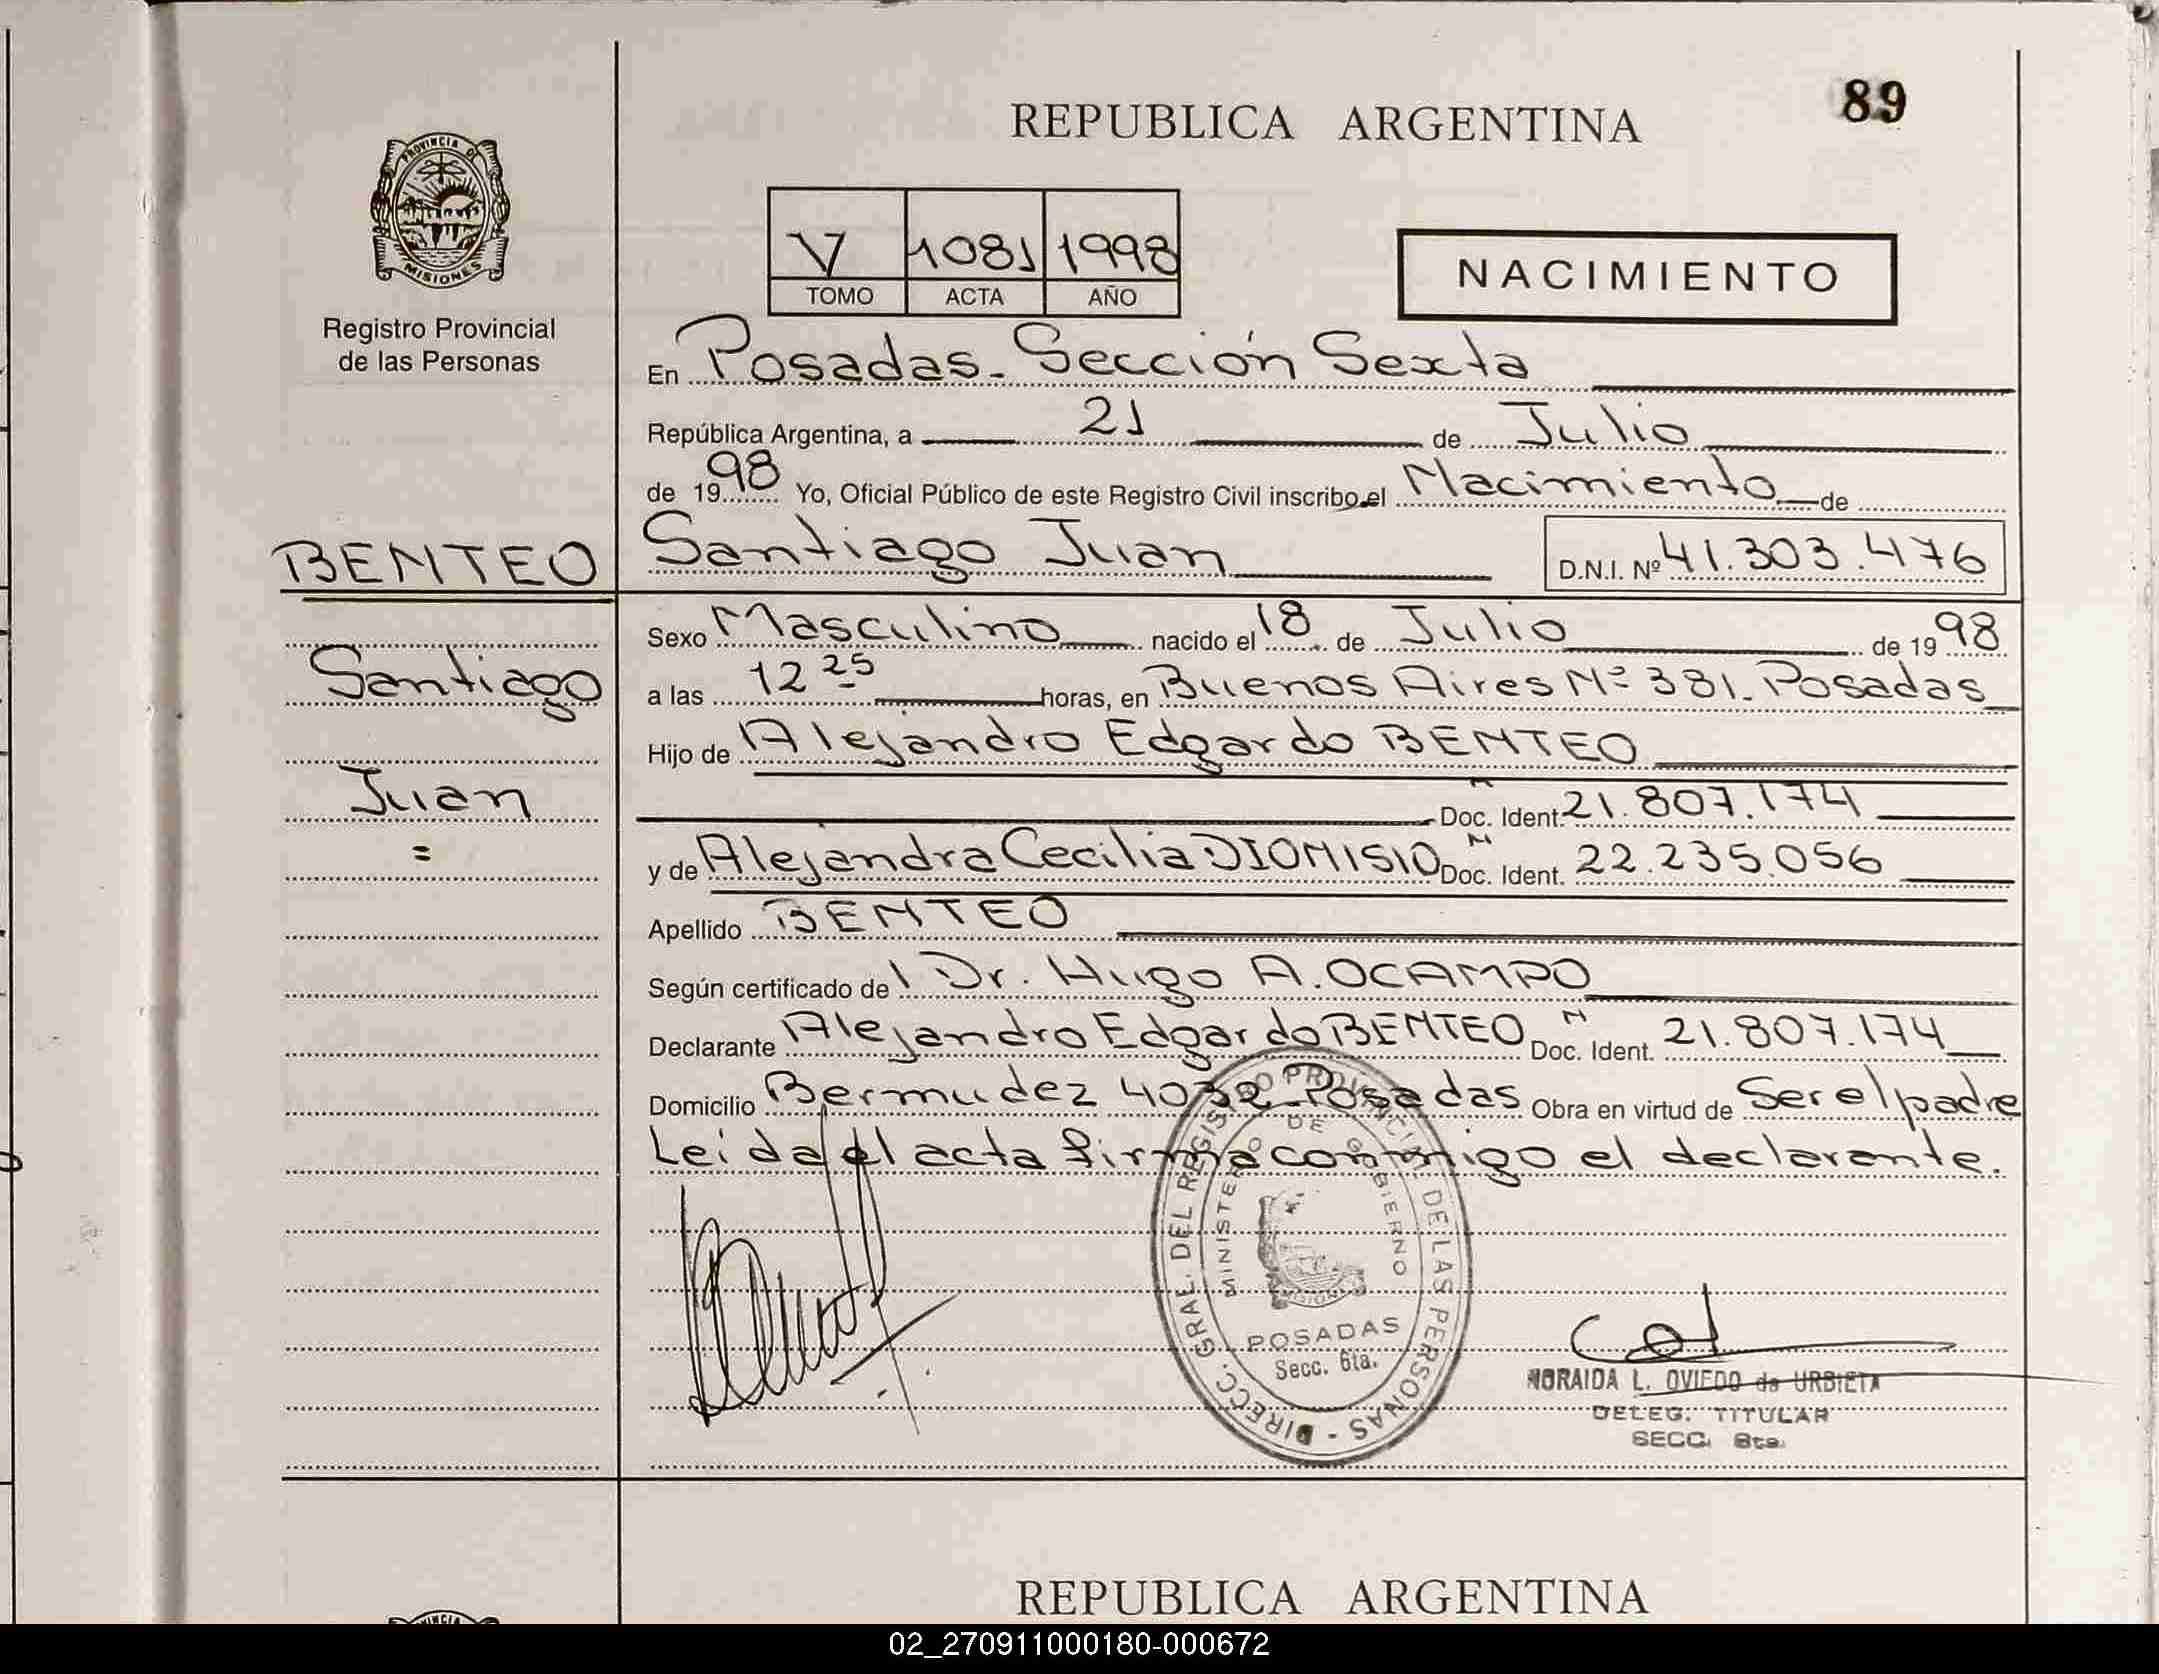 89
REPUBLICA ARGENTINA
PROVINCIA DE
MISIONES
Registro Provincial
de las Personas
V 1081 1998
TOMO ACTA AÑO
NACIMIENTO
En Posadas - Sección Sexta
República Argentina, a 21 de Julio
de 1998 Yo, Oficial Público de este Registro Civil inscribo el Nacimiento de
BENTEO Santiago Juan D.N.I. Nº 41.303.476
Sexo Masculino nacido el 18 de Julio de 1998
Santiago
a las 12 25 horas, en Buenos Aires Nº 381 - Posadas
Hijo de Alejandro Edgardo BENTEO
Juan
=
M
Doc. Ident. 21.807.174
y de Alejandra Cecilia DIONISIO M Doc. Ident. 22.235.056
Apellido BENTEO
Según certificado del Dr. Hugo A. OCAMPO
Declarante Alejandro Edgardo BENTEO M Doc. Ident. 21.807.174
Domicilio Bermudez 4032 - Posadas Obra en virtud de Ser el padre
Leida el acta firma conmigo el declarante.
DIRECC. GRAL. DEL REGISTRO PROVINCIAL DE LAS PERSONAS -
MINISTERIO DE GOBIERNO
MISIONES
POSADAS
Secc. 6ta.
NORAIDA L. OVIEDO de URBIETA
DELEG. TITULAR
SECC. 6ta.
REPUBLICA ARGENTINA
02_270911000180-000672